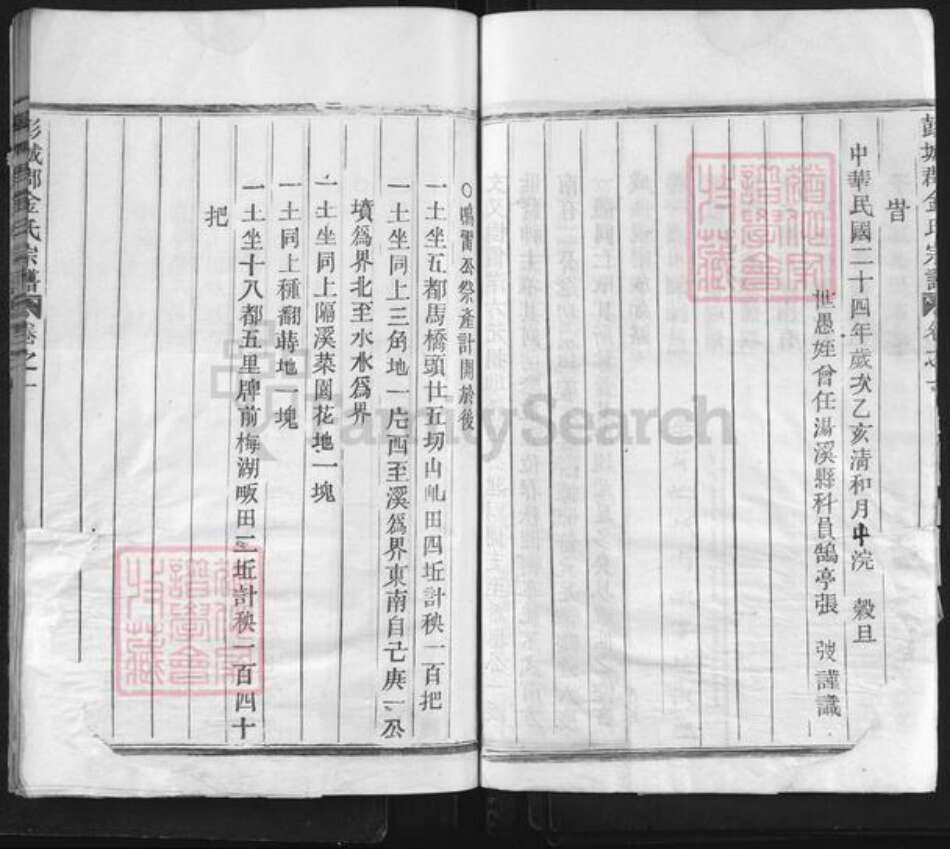 彭城郡金氏宗譜
卷之一
旹
中華民國二十四年歲次乙亥清和月中浣 穀旦
世愚姪曾任湯溪縣科員鵠亭張 弢謹識
公祭產計開於後
一土坐五都馬橋頭廿五切山屻田四坵計秧一百把
一土坐同上三角地一片西至溪爲界東南自己庚一公
墳爲界北至水水爲界
一土坐同上隔溪菜園花地一塊
一土同上種翻蒔地一塊
一土坐十八都五里牌前梅湖畈田二坵計秧一百四十
把
彭城郡金氏宗譜
卷之一
FamilySearch